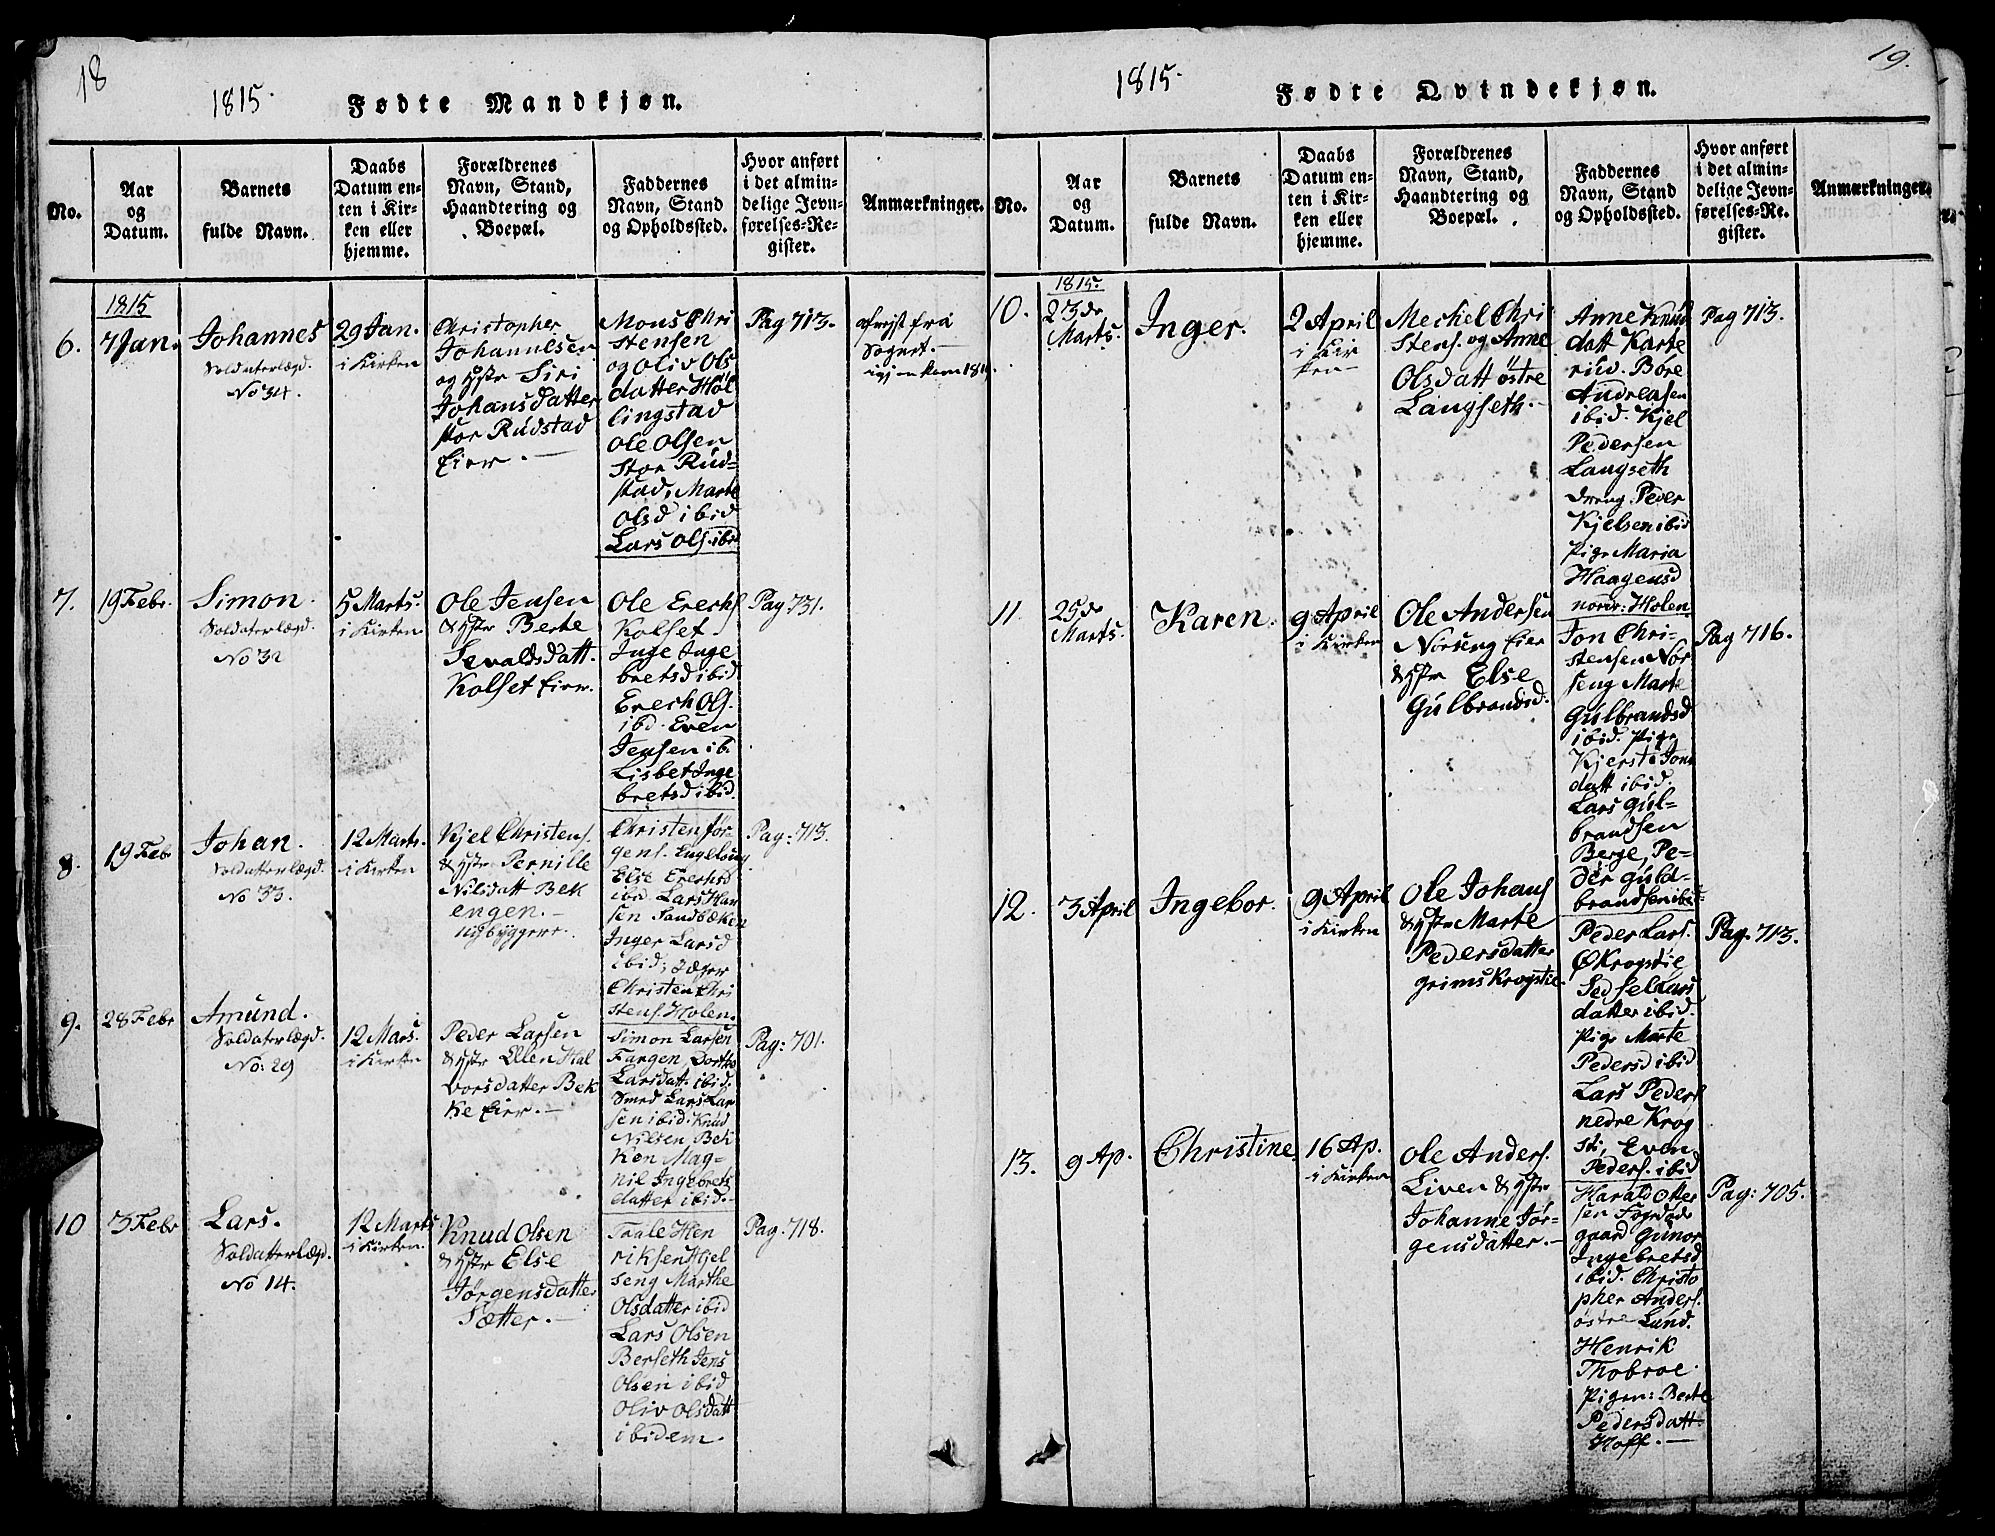 18
1815.
Fødte Mandkjøn.
No.
Aar
og
Datum.
Barnets
fulde Navn.
Daabs
Datum en-
ten i Kir-
ken eller
hjemme.
Forældrenes
Navn, Stand,
Haandtering og
Boepæl.
Faddernes
Navn, Stand
og Opholdssted.
Hvor anført
i det almin-
delige Jevn-
førelses-Re-
gister.
Anmærkninger.
1815
6.
7 Jan.
Johannes
Soldaterlægd.
No 34.
29 Jan.
i Kirken
Christopher
Johannesen
og hstr Siri
Johansdatter
stor Rudstad
Eier.
Mons Chri
stensen
og Oliv Ols
datter Høl
lingstad
Ole Olsen
Stor Rud=
stad, Marte
Olsd ibid
Lars Ols. ibid
Pag 713.
afrejst fra
Sognet.
7.
19 Febr.
Simon.
Soldaterlægd.
No 32
5 Marts.
i Kirken
Ole Jensen
& hstr Berte
Sevaldsdatt.
Kolset Eier.
Ole Erechs.
Kolset.
Inge Inge
bretsd ibid
Erech Ols.
ibd. Even
Jensen ib.
Lisbet Inge
bretsd ibid.
Pag 731.
8.
19 Febr
Johan.
Soldatterlægd.
No 33.
12 Marts.
i Kirken
Kjel Christens.
& hstr Pernille
Nilsdatt Bek
engen.
nybyggere.
Christen Jør-
gens. Engeloug
Else Erechsd
ibid Lars Han
sen Sandbæken
Inger Larsd
ibid;
Christen Chri
stens. Holen.
Pag: 713.
9.
28 Febr
Amund.
Soldaterlægd.
No: 29
12 Mars.
i Kirken
Peder Larsen
& hstr Ellen Hal
vorsdatter Bek
ke Eier.
Simon Larsen
Fangen, Dorthe
Larsdatt. ibid.
Smed Lars Lar
sen ibid. Knud
Nilsen Bek
ken Mag=
nil Ingebrets
datter ibid.
Pag: 701.
10
3 Febr
Lars.
Soldatterlægd.
No 14.
12 Marts
i Kirken.
Knud Olsen
& hstr Else
Jørgensdatter
Sætter.
Taale Hen
riksen Hjel
seng Marthe
Olsdatter ibid
Lars Olsen
Berseth Jens
Olsen ibid
Oliv Olsdatt
ibidem.
Pag: 718.
19.
1815.
Fødte Qvindekjøn.
No.
Aar
og
Datum.
Barnets
fulde Navn.
Daabs
Datum en-
ten i Kir-
ken eller
hjemme.
Forældrenes
Navn, Stand,
Haandtering og
Boepæl.
Faddernes
Navn, Stand
og Opholdssted.
Hvor anført
i det almin-
delige Jevn-
førelses-Re-
gister.
Anmærkninger.
1815.
10.
23de
Marts.
Inger.
2 April
i Kir
ken
Mechel Chri
stens. og Anne
Olsdatt østre
Langseth.
Anne Knud
datt Karte
rud. Børe
Andreasen
ibid. Kjel
Pedersen
Langseth
Dreng. Peder
Kjelsen ibid
Pige Maria
Haagensd
nordr: Holen
Pag 713.
11
25de
Marts.
Karen.
9 April
i Kirken
Ole Andersen
Norseng Eier
& hstr Else
Gulbrandsd.
Jon Chri-
stensen Nor
seng Marte
Gulbrandsd
ibid. Pige
Kjersti Jons
datt ibid.
Lars Gul-
brandsen
Berge, Pe-
der Guld-
brandsen ibid
Pag 716.
12.
3 April
Ingebor.
9 April
i Kirken
Ole Johans
& hstr Marte
Pedersdatter
grims Krogstie
Peder Lars.
Ø Krogstie
Sedsel Lars
datter ibid.
Pige Marte
Pedersd ibid
Lars Peders
nedre Krog
sti, Even
Peders. ibid
Pag. 713.
13.
9 Ap.
Christine.
16 Ap.
i Kirken
Ole Anders.
Liven & hstr
Johanne Jør-
gensdatter.
Harald Otter
sen
gaard Gunor
Ingebretsd
ibid. Christo
pher Anders.
østre Lund.
Henrik
Thobroe.
Pigen: Berte
Pedersdatt.
Hoff.
Pag: 705.